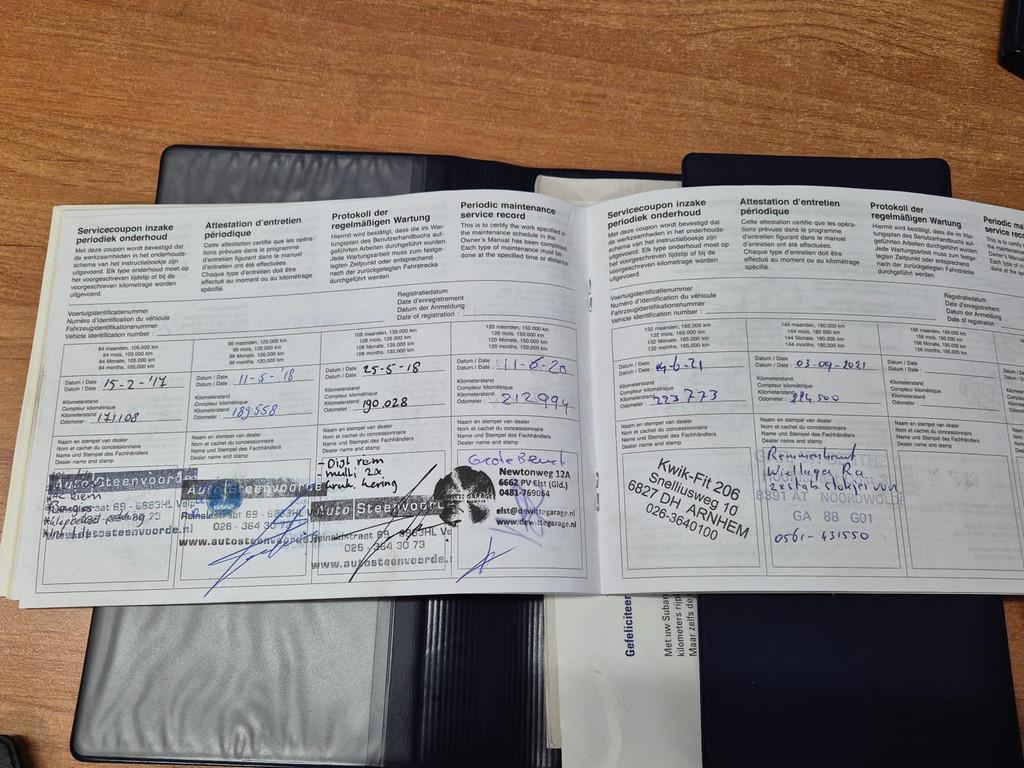 Servicecoupon inzake
periodiek onderhoud
Met deze coupon wordt bevestigd dat
de werkzaamheden in het onderhouds-
schema van het instructieboekje zijn
uitgevoerd. Elk type onderhoud moet op
het voorgeschreven tijdstip of bij de
voorgeschreven kilometrage worden
uitgevoerd.
Attestation d'entretien
périodique
Cette attestation certifie que les opéra-
tions prévues dans le programme
d'entretien figurant dans le manuel
d'entretien ont été effectuées.
Chaque type d'entretien doit être
effectué au moment ou au kilométrage
spécifié.
Protokoll der
regelmäßigen Wartung
Hiermit wird bestätigt, dass die im War-
tungsplan des Benutzerhandbuchs auf-
geführten Arbeiten durchgeführt wurden.
Jede Wartungsarbeit muss zum festge-
legten Zeitpunkt oder entsprechend
nach der zurückgelegten Fahrstrecke
durchgeführt werden.
Periodic maintenance
service record
This is to certify the work specified in
the maintenance schedule in the
Owner's Manual has been completed.
Each type of maintenance must be
done at the specified time or distance.
Voertuigidentificatienummer
Numéro d'identification du véhicule
Fahrzeugidentifikationsnummer
Vehicle identification number :
Registratiedatum
Date d'enregistrement
Datum der Anmeldung
Date of registration :
84 maanden, 105.000 km
84 mois, 105.000 km
84 Monate, 105.000 km
84 months, 105.000 km
96 maanden, 120.000 km
96 mois, 120.000 km
96 Monate, 120.000 km
96 months, 120.000 km
108 maanden, 135.000 km
108 mois, 135.000 km
108 Monate, 135.000 km
108 months, 135.000 km
120 maanden, 150.000 km
120 mois, 150.000 km
120 Monate, 150.000 km
120 months, 150.000 km
Datum / Date
Datum / Date : 15-2-'17
Datum / Date
Datum / Date : 11-5-'18
Datum / Date
Datum / Date : 25-5-18
Datum / Date
Datum / Date : 11-6-20
Kilometerstand
Compteur kilométrique
Kilometerstand
Odometer : 171108
Kilometerstand
Compteur kilométrique
Kilometerstand
Odometer : 189558
Kilometerstand
Compteur kilométrique
Kilometerstand
Odometer : 190.028
Kilometerstand
Compteur kilométrique
Kilometerstand
Odometer : 212994
Naam en stempel van dealer
Nom et cachet du concessionnaire
Name und Stempel des Fachhändlers
Dealer name and stamp
Naam en stempel van dealer
Nom et cachet du concessionnaire
Name und Stempel des Fachhändlers
Dealer name and stamp
Naam en stempel van dealer
Nom et cachet du concessionnaire
Name und Stempel des Fachhändlers
Dealer name and stamp
Naam en stempel van dealer
Nom et cachet du concessionnaire
Name und Stempel des Fachhändlers
Dealer name and stamp
Auto Steenvoorde
riem
Auto Steenvoorde
026 - 364 30 73
www.autosteenvoorde.nl
- Dist riem
- multi 2x
Auto Steenvoorde
026 - 364 30 73
www.autosteenvoorde.
Grote Beurt
Newtonweg 12A
6662 PV Elst (Gld.)
0481-769064
elst@dewittegarage.nl
www.dewittegarage.nl
Servicecoupon inzake
periodiek onderhoud
Met deze coupon wordt bevestigd dat
de werkzaamheden in het onderhouds-
schema van het instructieboekje zijn
uitgevoerd. Elk type onderhoud moet op
het voorgeschreven tijdstip of bij de
voorgeschreven kilometrage worden
uitgevoerd.
Attestation d'entretien
périodique
Cette attestation certifie que les opéra-
tions prévues dans le programme
d'entretien figurant dans le manuel
d'entretien ont été effectuées.
Chaque type d'entretien doit être
effectué au moment ou au kilométrage
spécifié.
Protokoll der
regelmäßigen Wartung
Hiermit wird bestätigt, dass die im War-
tungsplan des Benutzerhandbuchs auf-
geführten Arbeiten durchgeführt wurden.
Jede Wartungsarbeit muss zum festge-
legten Zeitpunkt oder entsprechend
nach der zurückgelegten Fahrstrecke
durchgeführt werden.
Periodic
service
Voertuigidentificatienummer
Numéro d'identification du véhicule
Fahrzeugidentifikationsnummer
Vehicle identification number :
Registratiedatum
Date d'enregistrement
Datum der Anmeldung
Date of registration
132 maanden, 165.000 km
132 mois, 165.000 km
132 Monate, 165.000 km
132 months, 165.000 km
144 maanden, 180.000 km
144 mois, 180.000 km
144 Monate, 180.000 km
144 months, 180.000 km
156 maanden, 195.000 km
156 mois, 195.000 km
156 Monate, 195.000 km
156 months, 195.000 km
Datum / Date
Datum / Date
Datum / Date
Datum / Date : 03-09-2021
Datum / Date
Datum / Date :
Kilometerstand
Compteur kilométrique
Kilometerstand
Odometer : 223773
Kilometerstand
Compteur kilométrique
Kilometerstand
Odometer : 224500
Kilometerstand
Compteur kilométrique
Kilometerstand
Odometer :
Naam en stempel van dealer
Nom et cachet du concessionnaire
Name und Stempel des Fachhändlers
Dealer name and stamp
Naam en stempel van dealer
Nom et cachet du concessionnaire
Name und Stempel des Fachhändlers
Dealer name and stamp
Naam en stempel van dealer
Nom et cachet du concessionnaire
Name und Stempel des Fachhändlers
Dealer name and stamp
Kwik-Fit 206
Snelliusweg 10
6827 DH ARNHEM
026-3640100
Remmenbeurt
Wiellager Ra
8391 AT NOORDWOL
GA 88 G01
0561-431550
Gefeliciteer
Met uw Subar
kilometers rijp
Maar zelfs de